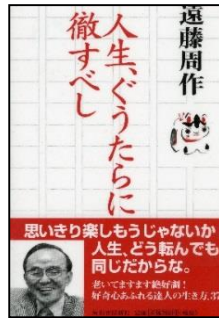 遠藤周作
人生、ぐうたらに
徹すべし
思いきり楽しもうじゃないか
人生、どう転んでも
同じだからな。
老いてますます絶好調!
好奇心あふれる達人の生き方、37